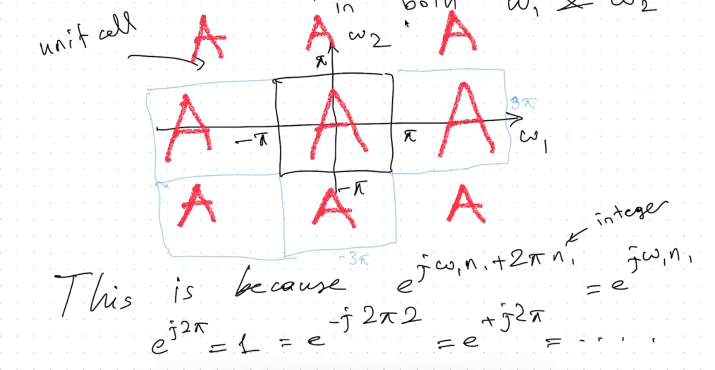 in both ω₁ & ω₂
unit cell A A ω₂ A
π
A A A 3π
-π π ω₁
A A -π A
-3π
integer
This is because e^{jω₁n₁+2πn₁} = e^{jω₁n₁}
e^{j2π} = 1 = e^{-j2π2} = e^{+j2π} = .....